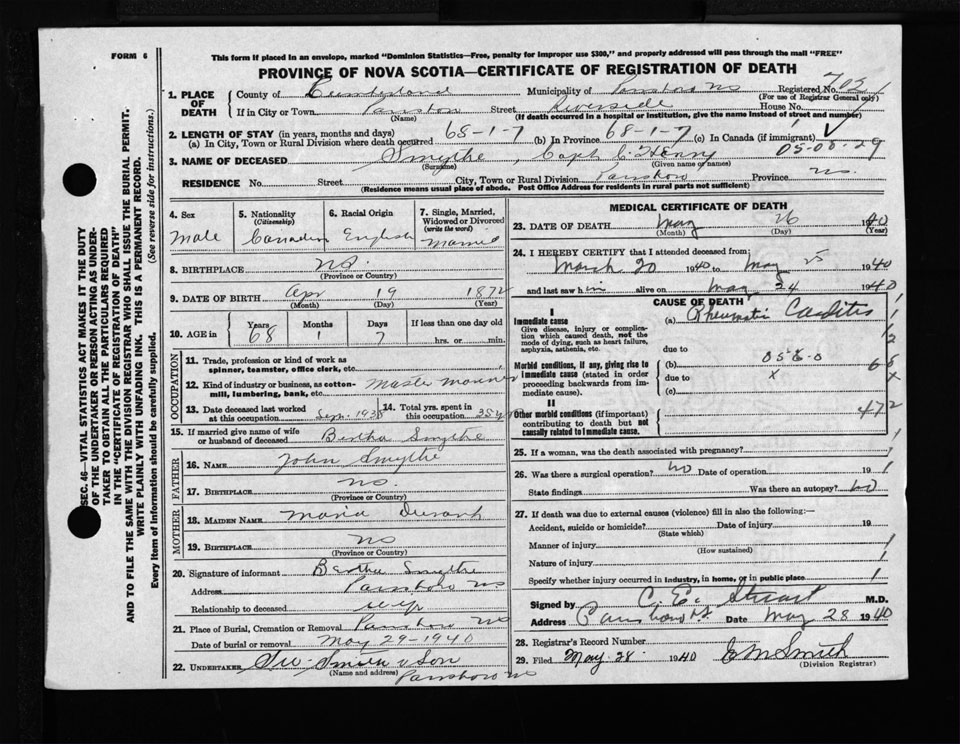 FORM 6
This form if placed in an envelope, marked "Dominion Statistics—Free, penalty for improper use $300," and properly addressed will pass through the mail "FREE"
PROVINCE OF NOVA SCOTIA—CERTIFICATE OF REGISTRATION OF DEATH
SEC. 46—VITAL STATISTICS ACT MAKES IT THE DUTY
OF THE UNDERTAKER OR PERSON ACTING AS UNDER-
TAKER TO OBTAIN ALL THE PARTICULARS REQUIRED
IN THE "CERTIFICATE OF REGISTRATION OF DEATH"
AND TO FILE THE SAME WITH THE DIVISION REGISTRAR WHO SHALL ISSUE THE BURIAL PERMIT.
WRITE PLAINLY WITH UNFADING INK. THIS IS A PERMANENT RECORD.
Every item of information should be carefully supplied. (See reverse side for instructions.)
1. PLACE OF DEATH
County of Cumberland Municipality of Parrsboro NS Registered No. 702
(For use of Registrar General only)
If in City or Town Parrsboro Street Riverside House No.
(Name) (If death occurred in a hospital or institution, give the name instead of street and number)
2. LENGTH OF STAY (in years, months and days)
(a) In City, Town or Rural Division where death occurred 68-1-7 (b) In Province 68-1-7 (c) In Canada (if immigrant)
05-00-29
3. NAME OF DECEASED Smythe, Capt C. Henry
(Surname) (Given name or names)
RESIDENCE No. Street City, Town or Rural Division Parrsboro Province NS.
(Residence means usual place of abode. Post Office Address for residents in rural parts not sufficient)
4. Sex Male
5. Nationality (Citizenship) Canadian
6. Racial Origin English
7. Single, Married, Widowed or Divorced (write the word) Married
8. BIRTHPLACE NS.
(Province or Country)
9. DATE OF BIRTH Apr 19 1872
(Month) (Day) (Year)
10. AGE in Years 68 Months 1 Days 7 If less than one day old
hrs. or min.
OCCUPATION
11. Trade, profession or kind of work as spinner, teamster, office clerk, etc.
12. Kind of industry or business, as cotton-mill, lumbering, bank, etc. Master mariner
13. Date deceased last worked at this occupation Sep. 1938
14. Total yrs. spent in this occupation 35 y
15. If married give name of wife or husband of deceased Bertha Smythe
FATHER
16. NAME John Smythe
17. BIRTHPLACE NS.
(Province or Country)
MOTHER
18. MAIDEN NAME Maria Durant
19. BIRTHPLACE NS
(Province or Country)
20. Signature of informant Bertha Smythe
Address Parrsboro NS
Relationship to deceased wife
21. Place of Burial, Cremation or Removal Parrsboro NS
Date of burial or removal May 29-1940
22. UNDERTAKER Smith & Son
(Name and address)
Parrsboro NS
MEDICAL CERTIFICATE OF DEATH
23. DATE OF DEATH May 26 1940
(Month) (Day) (Year)
24. I HEREBY CERTIFY that I attended deceased from:
March 20 1940 to May 25 1940
and last saw him alive on May 24 1940
CAUSE OF DEATH
I
Immediate cause (a) Rheumatic Carditis
Give disease, injury or complication which caused death, not the mode of dying, such as heart failure, asphyxia, asthenia, etc.
due to
Morbid conditions, if any, giving rise to immediate cause (stated in order proceeding backwards from immediate cause). (b)
due to
(c)
II
Other morbid conditions (if important) contributing to death but not causally related to immediate cause.
472
25. If a woman, was the death associated with pregnancy?
26. Was there a surgical operation? No Date of operation 19
State findings Was there an autopsy? No
27. If death was due to external causes (violence) fill in also the following:—
Accident, suicide or homicide? Date of injury 19
(State which)
Manner of injury
(How sustained)
Nature of injury
Specify whether injury occurred in industry, in home, or in public place
Signed by C. E. Stuart M.D.
Address Parrsboro NS. Date May 28 1940
28. Registrar's Record Number
29. Filed May 28 1940 E M Smith
(Division Registrar)